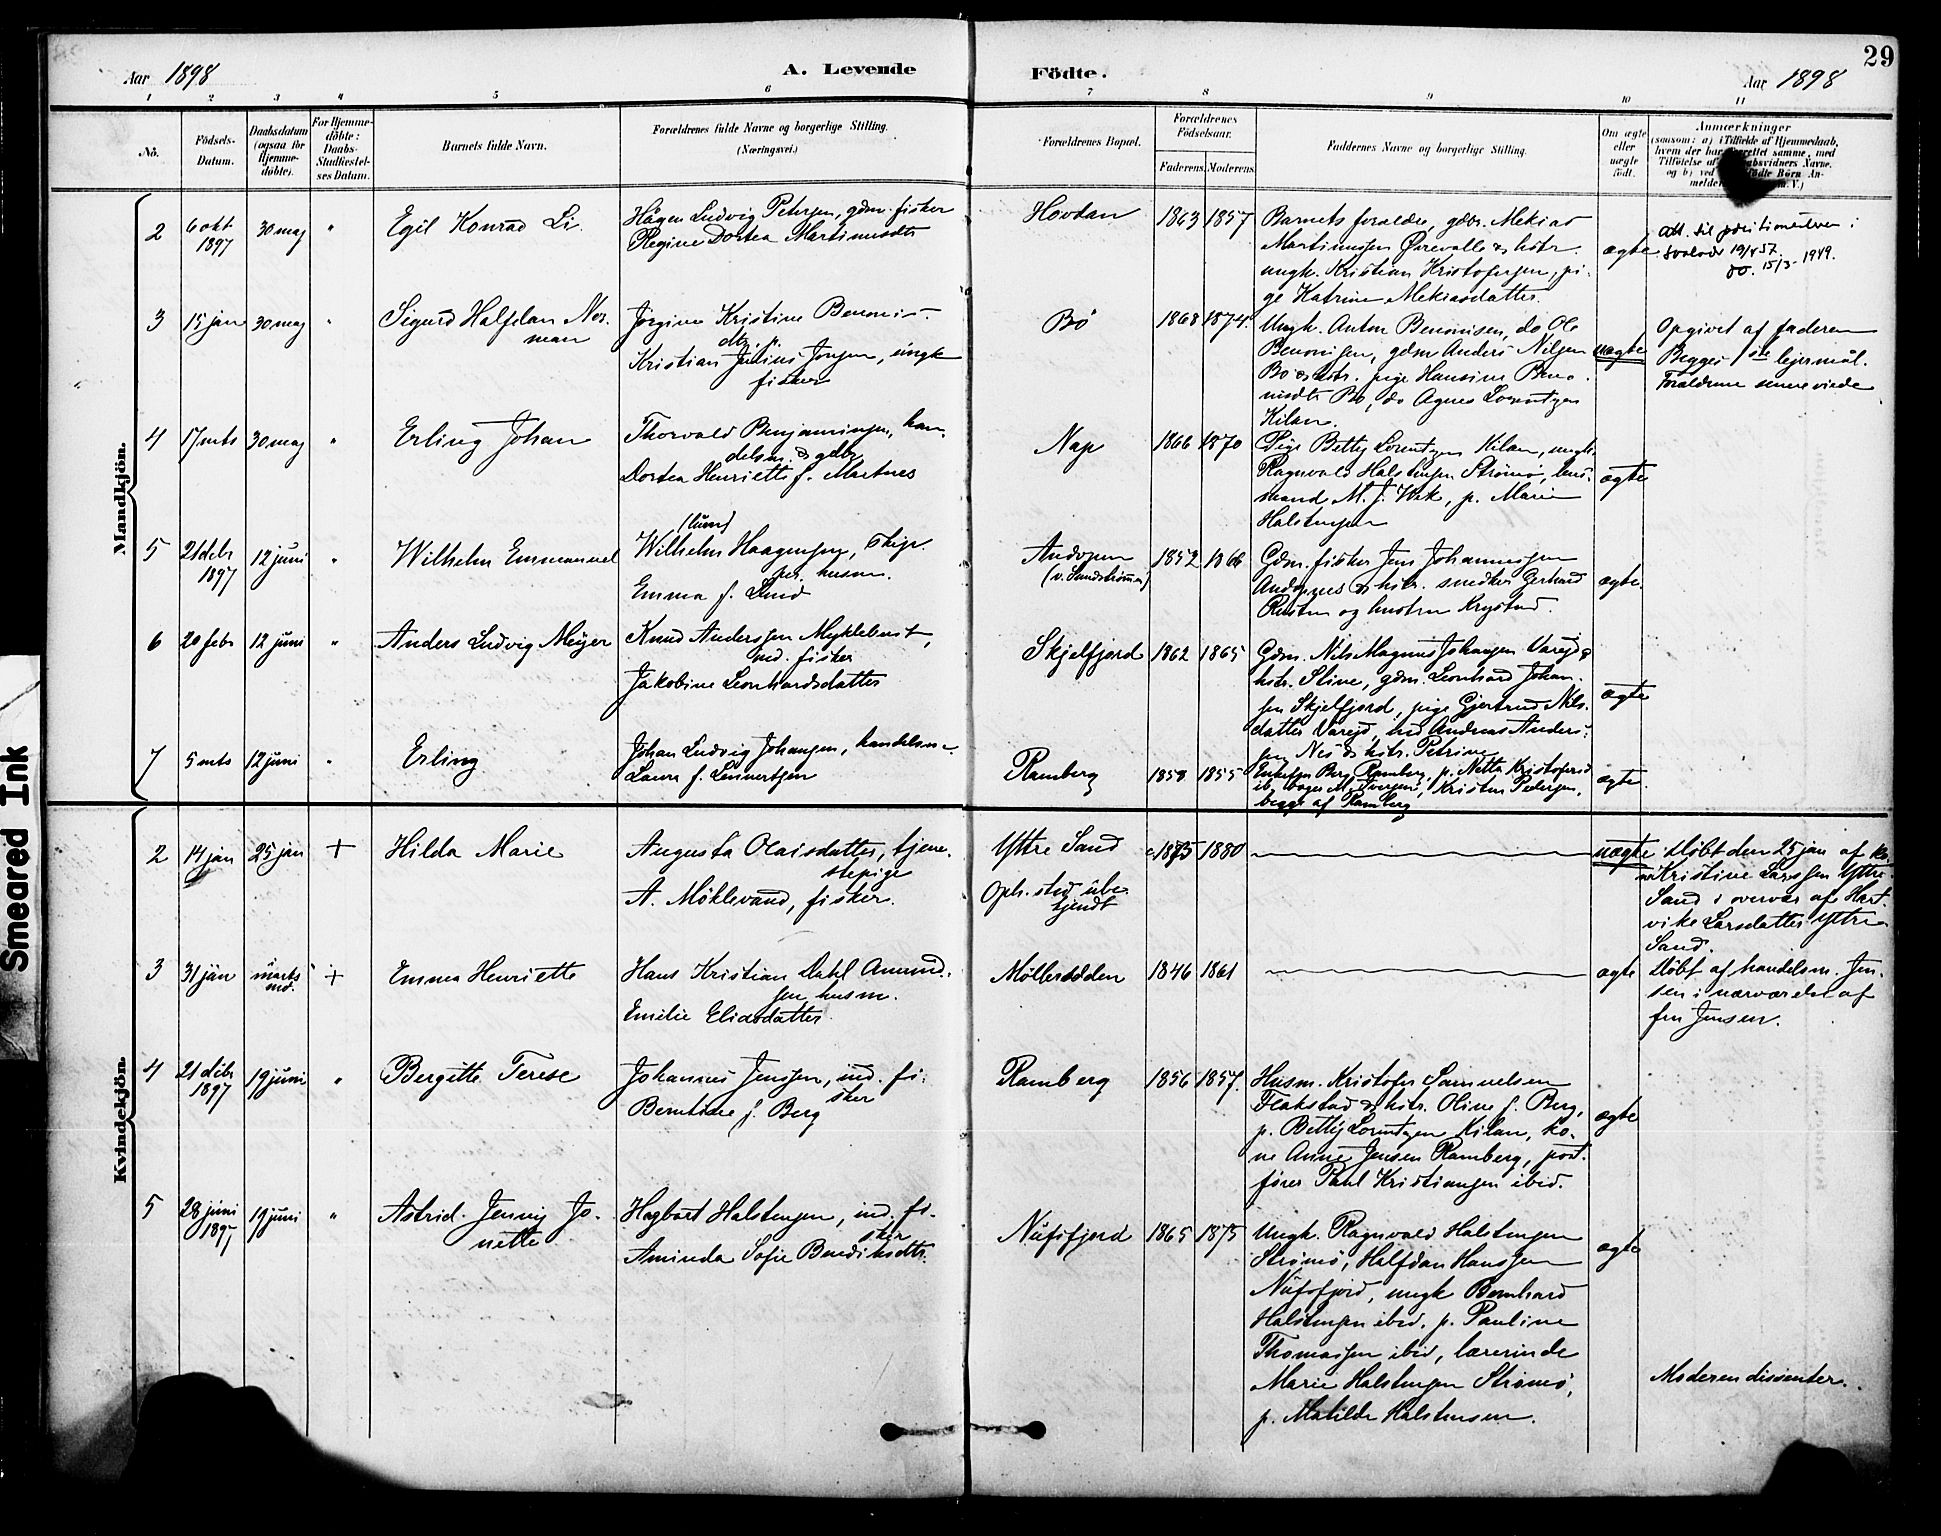 29
Aar 1898
A. Levende
Födte.
Aar 1898
1 2 3 4 5 6 7 8 9 10 11
No.
Födsels-
Datum.
Daabsdatum
(ogsaa for
Hjemme-
döbte).
For Hjemme-
döbte:
Daabs-
Stadfæstel-
ses Datum.
Barnets fulde Navn.
Forældrenes fulde Navne og borgerlige Stilling.
(Næringsvei.)
Forældrenes Bopæl.
Forældrenes
Födselsaar.
Faderens. Moderens.
Faddernes Navne og borgerlige Stilling.
Om ægte
eller
uægte
födt.
Anmærkninger
(saasom: a) i Tilfælde af Hjemmedaab,
hvem der har forrettet samme, med
Tilföielse af Daabsvidners Navne.
Mandkjön.
2
6 okt
1897
30 maj
"
Egil Konrad Li
Hågen Ludvig Petersen, gdm. fisker
Regine Dortea Martinusdtr
Hovdan
1863
1857
Barnets forældre, gdbr. Mekias
Martinussen Ørevalle & hstr.
ungk. Kristian Kristofersen, pi-
ge Katrine Mekiasdatter.
ægte
15/3 - 1949.
3
15 jan
30 maj
"
Sigurd Halfdan Nor-
man
Jørgine Kristine Benonis-
dtr. p.
Kristian Julius Jonsen, ungk
fisker
Bö
1868
1874.
Ungk. Anton Benonisen, do Ole
Benonisen, gdm Anders Nilsen
Bö & hstr. pige Hansine Beno-
nisdtr Bö, do Agnes Lorentzen
Kilan.
uægte
Opgivet af faderen
Begges 1ste lejermål.
Forældrene senere viede
4
17 mts
30 maj
"
Erling Johan
Thorvald Benjaminsen, han-
delsm. & gdbr
Dortea Henriette f. Martnes
Nap
1866
1870
Pige Betty Lorentzen Kilan, ungk.
Ragnvald Halstensen Strömö, lens-
mand M. J. Wek, p. Marie
Halstensen
ægte
5
21 debr
1897
12 juni
"
Wilhelm Emmanuel
(Lund)
Wilhelm Haagensen, skip-
per. husm.
Emma f. Lund
Andopen
(v. Sundströmmen)
1852
1866
Gdm. fisker Jens Johannessen
Andopnes & hstr. snedker Gerhard
Rusten og hustru Krystad.
ægte.
6
20 febr
12 juni
"
Anders Ludvig Meyer
Knud Anderssen Myklebust,
ind. fisker
Jakobine Leonhardsdatter
Skjelfjord
1862
1865
Gdm. Nils Magnus Johansen Vareid &
hstr. Stine, gdm. Leonhard Johan-
sen Skjelfjord, pige Gjertrud Nils-
datter Vareid, ind Andreas Anders-
sen Nes & hstr. Petrine
ægte
7
5 mts
12 juni
"
Erling
Johan Ludvig Johansen, handelsm.
Laura f. Lennertsen
Ramberg
1858
1855
Enkefru Berg Ramberg, p. Netta Kristofersd
ib, bager M. Iversen, Kristen Pedersen,
begge af Ramberg
ægte.
Kvindekjön.
2
14 jan
25 jan
+
Hilda Marie
Augusta Olaisdatter, tjene-
stepige
A. Möklevand, fisker.
Yttre Sand
Oph. sted übe-
kjendt
c. 1875
1880
uægte
Döbt den 25 jan af ko-
ne Kristine Larssen Yttre
Sand i overvær af Hart-
vike Larsdatter Yttre
Sand.
3
31 jan
marts
md.
+
Emma Henriette
Hans Kristian Dahl Amund-
sen husm.
Emilie Eliasdatter
Möllerodden
1846
1861
ægte
Döbt af handelsm. Jen-
sen i nærværelse af
fru Jensen.
4
21 debr
1897
19 juni
"
Bergitte Terese
Johannes Jenssen, ind. fi-
sker
Berntine f. Berg
Ramberg
1856
1857.
Husm. Kristofer Samuelsen
Flakstad & hstr. Oline f. Berg,
p. Betty Lorentzen Kilan, ko-
ne Anne Jensen Ramberg, post-
förer Pahl Kristiansen ibid.
ægte
5
28 juni
1897
19 juni
"
Astrid Jenny Jo-
nette
Hagbart Halstensen, ind. fi-
sker
Aminda Sofie Bendiksdtr.
Nüfsfjord
1865
1875
Ungk. Ragnvald Halstensen
Strömö, Halfdan Hanssen
Nüfsfjord, ungk Bernhard
Halstensen ibid. p. Pauline
Thomassen ibid, lærerinde
Marie Halstensen Strömö,
p. Matilde Halstensen.
ægte
Moderen dissenter.
Smeared Ink